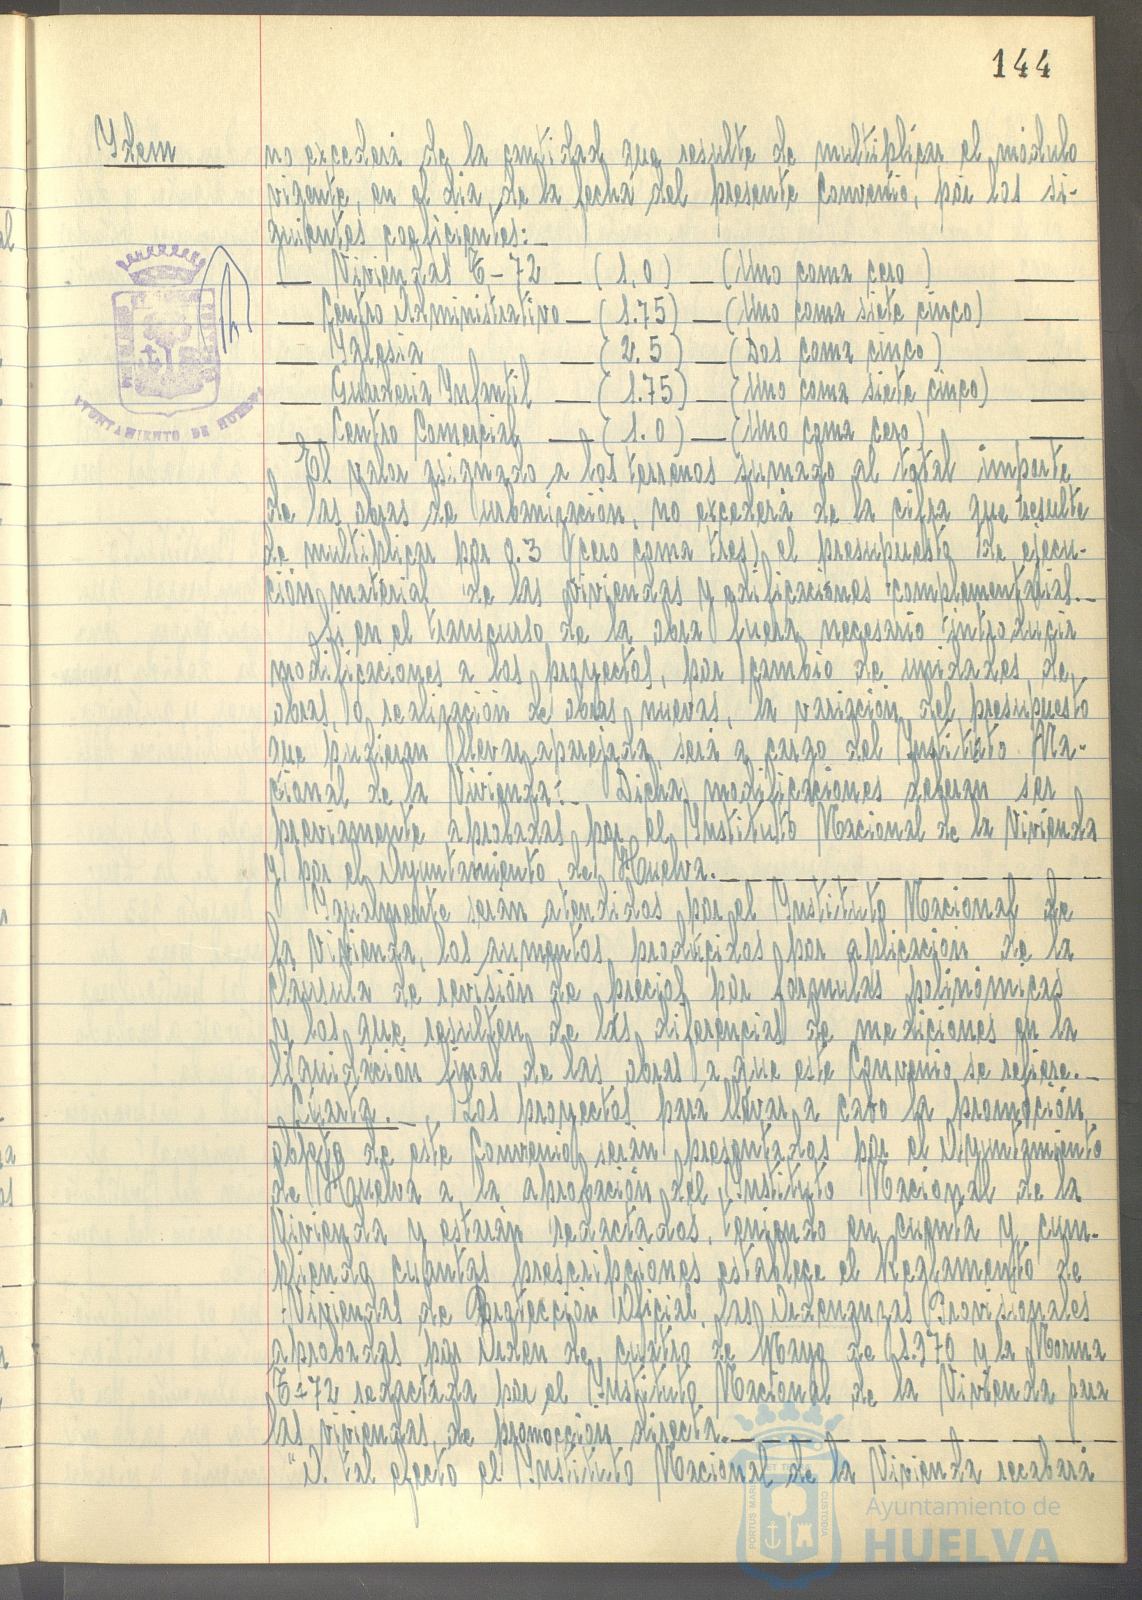 144
Idem
no excederá de la cantidad que resulte de multiplicar el módulo
vigente, en el dia, de la fecha del presente Convenio, por los si-
guientes coeficientes:_
__ Viviendas T-72 __ (1.0) __ (Uno coma cero) __
__ Centro Administrativo __ (1.75) __ (Uno coma siete cinco) __
__ Iglesia __ (2.5) __ (Dos coma cinco) __
__ Guarderia Infantil __ (1.75) __ (Uno coma siete cinco) __
__ Centro Comercial __ (1.0) __ (Uno coma cero) __
El valor asignado a los terrenos sumado al total importe
de las obras de urbanización, no excederá de la cifra que resulte
de multiplicar por 0.3 (cero coma tres) el presupuesto de ejecu-
ción material de las viviendas y edificaciones complementarias._
Si en el transcurso de la obra fuera necesario introducir
modificaciones a los proyectos, por cambio de unidades, de
obras, o realización de obras nuevas, la variación del presupuesto
que pudieran llevar aparejada, será a cargo del Instituto Na-
cional de la Vivienda:_ Dichas modificaciones deberan ser
previamente aprobadas por el Instituto Nacional de la Vivienda
y por el Ayuntamiento de Huelva.
Igualmente serán atendidos por el Instituto Nacional de
la Vivienda, los aumentos producidos por aplicación de la
cláusula de revisión de precios por formulas polinómicas
y los que resulten de las diferencias de mediciones en la
liquidación final de las obras a que este Convenio se refiere._
Cuarta._ Los proyectos para llevar a cavo la promoción
objeto de este Convenio serán presentados por el Ayuntamiento
de Huelva a la aprobación del Instituto Nacional de la
Vivienda y estarán redactados, teniendo en cuenta y cum-
pliendo cuantas prescripciones establece el Reglamento de
Viviendas de Protección Oficial, las Ordenanzas Provisionales
aprobadas por Orden de cuatro de Mayo de 1.970 y la Norma
T-72 redactada por el Instituto Nacional de la Vivienda para
las viviendas de promoción directa.
A tal efecto el Instituto Nacional de la Vivienda recabará
AYUNTAMIENTO DE HUELVA
PORTUS MARIS ET TERRAE CUSTODIA
Ayuntamiento de
HUELVA